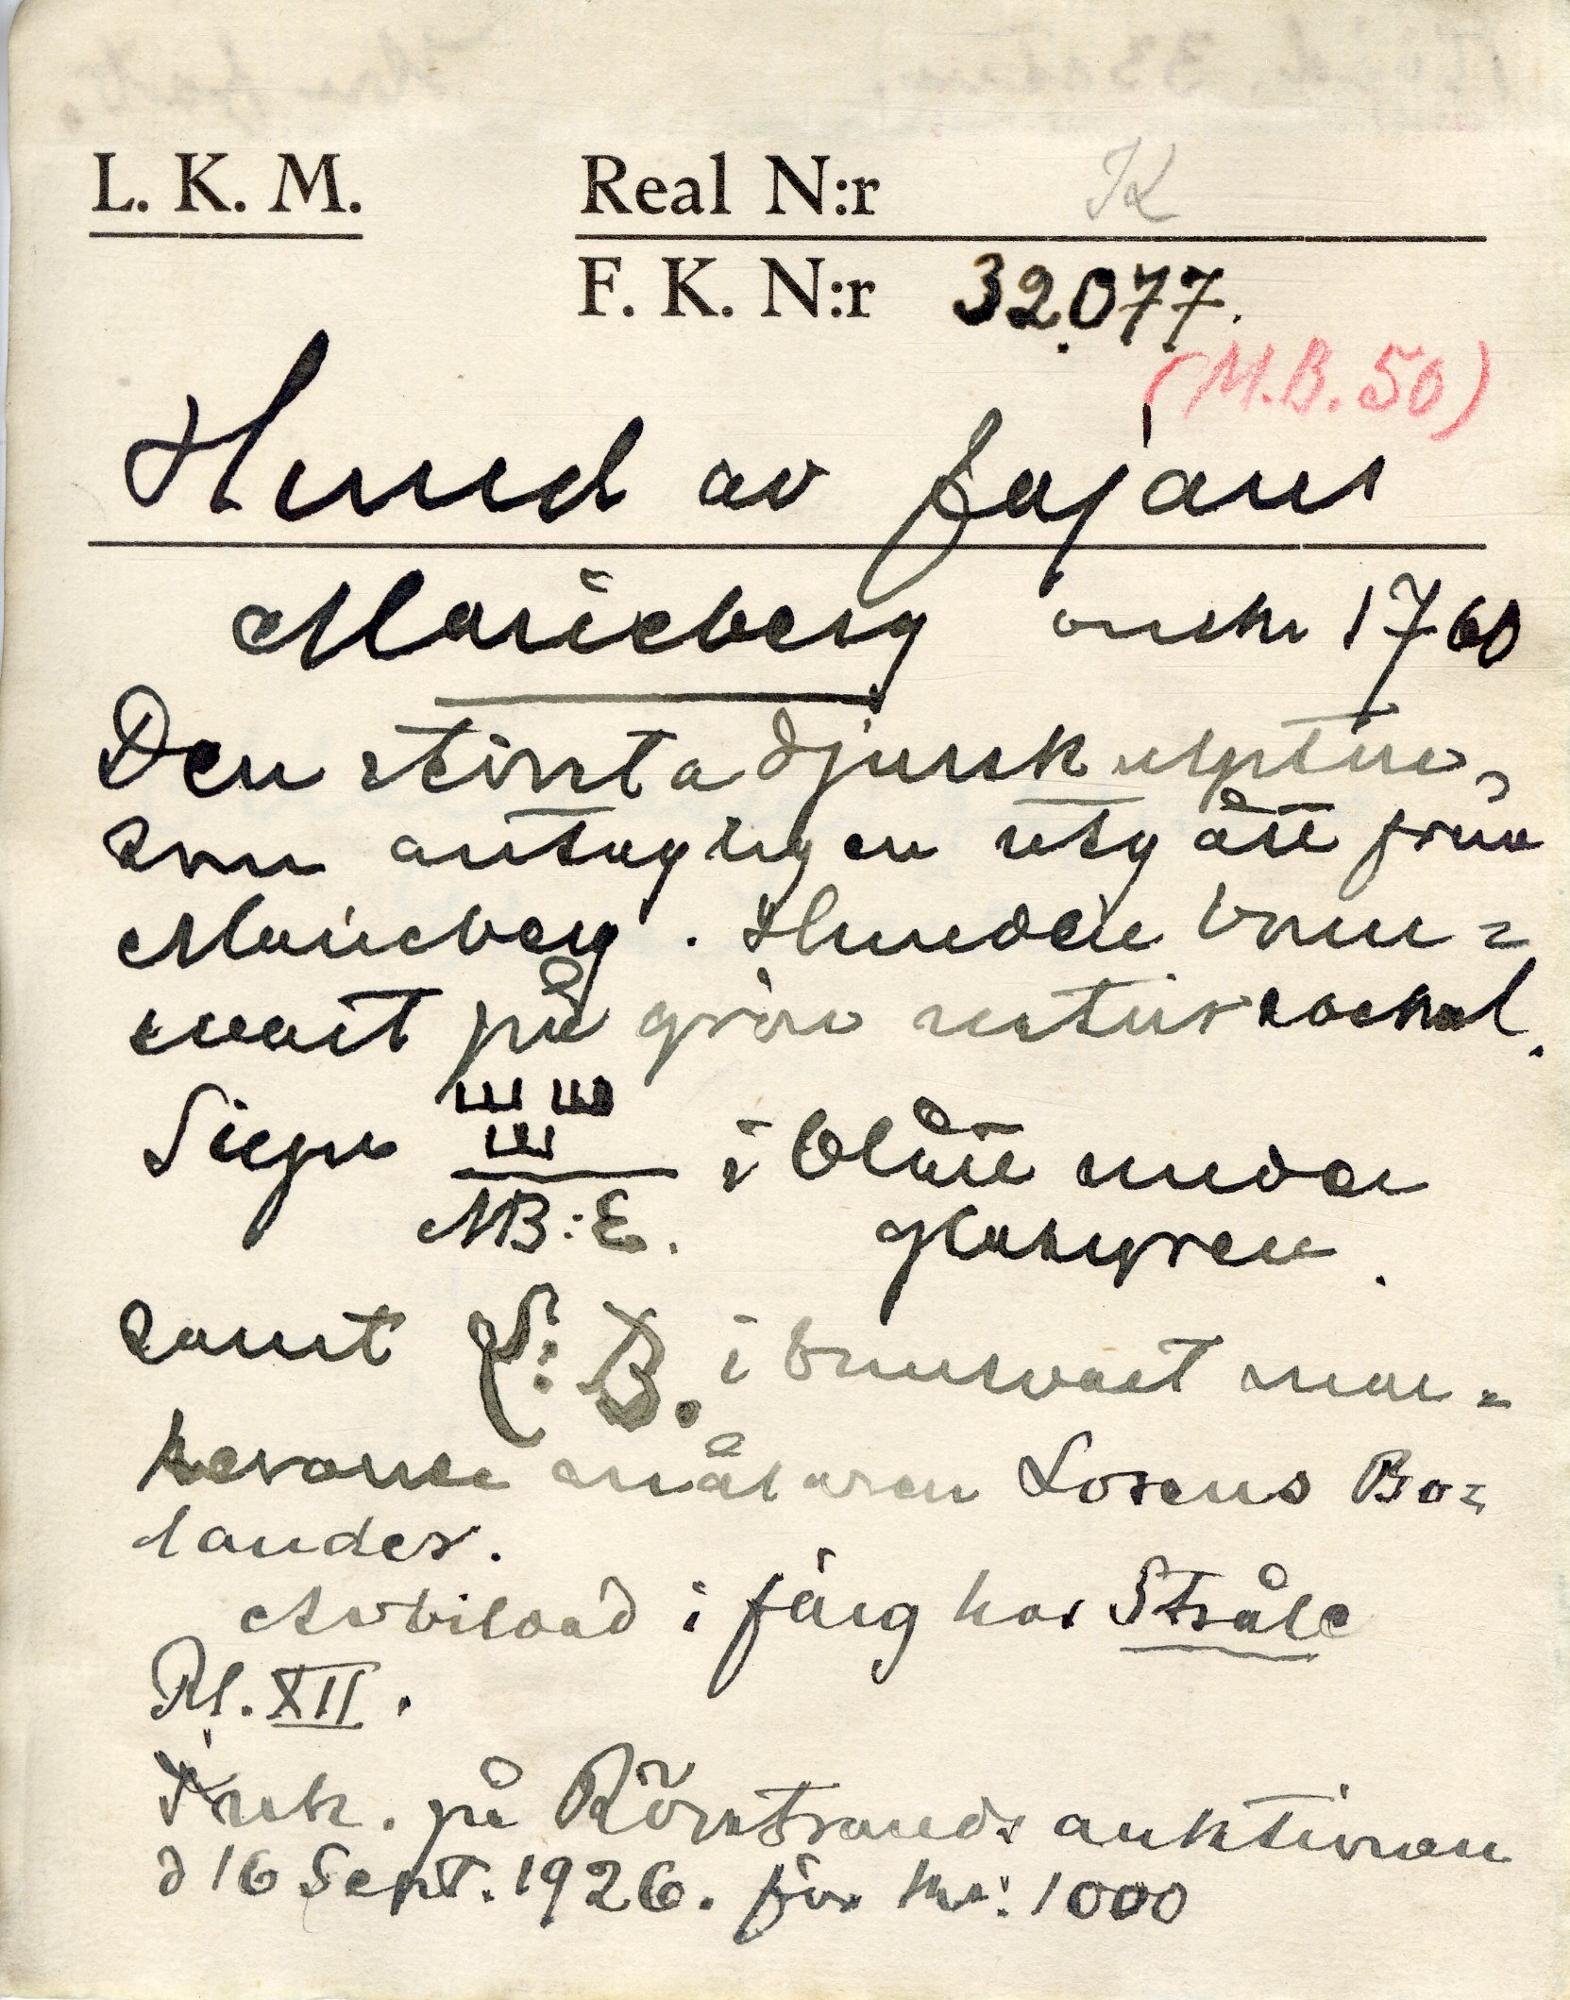 L. K. M. Real N:r K
F. K. N:r 32.077.
(M.B. 50)
Hund av fajans
Marieberg omkr 1760
Den största djurskulptur,
som antagligen utgått från
Marieberg. Hunden brun=
svart på grön rutig sockel.
Sign MB:E. i blått under
glasyren.
samt L:B. i brunsvart mar=
kerande målaren Lorens Bo=
lander.
Avbildad i färg hos Stråle
Pl. XII.
Ink. på Rörstrands auktionen
d 16 Sept. 1926. för kr: 1000